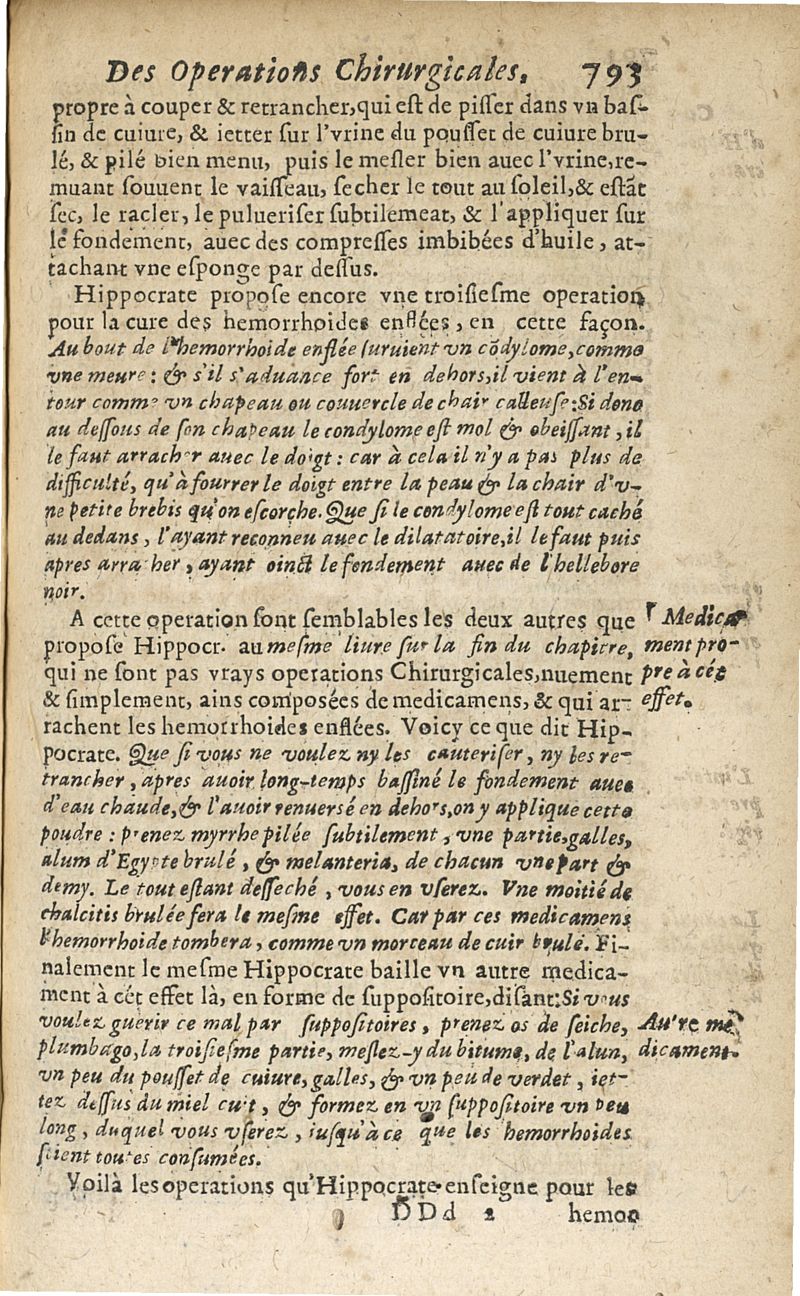 Des Operations Chirurgicales. 793
propre à couper & retrancher, qui est de pisser dans vn bas-
sin de cuiure, & ietter sur l'vrine du pousset de cuiure bru-
lé, & pilé bien menu, puis le mesler bien auec l'vrine, re-
muant souuent le vaisseau, secher le tout au soleil, & estāt
sec, le racler, le pulueriser subtilemeat, & l'appliquer sur
le fondement, auec des compresses imbibées d'huile, at-
tachant vne esponge par dessus.
Hippocrate propose encore vne troisiesme operation
pour la cure des hemorrhoides enflées, en cette façon.
Au bout de l'hemorrhoide enflée suruient vn cōdylome, comme
vne meure: & s'il s'aduance fort en dehors, il vient à l'en-
tour comme vn chapeau ou couuercle de chair calleuse: Si donc
au dessous de son chapeau le condylome est mol & obeissant, il
le faut arracher auec le doigt: car à cela il n'y a pas plus de
difficulté, qu'à fourrer le doigt entre la peau & la chair d'v-
ne petite brebis qu'on escorche. Que si le condylome est tout caché
au dedans, l'ayant reconneu auec le dilatatoire, il le faut puis
apres arracher, ayant oinct le fondement auec de l'hellebore
noir.
A cette operation sont semblables les deux autres que
propose Hippocr. au mesme liure sur la fin du chapitre,
qui ne sont pas vrays operations Chirurgicales, nuement
& simplement, ains composées de medicamens, & qui ar-
rachent les hemorrhoides enflées. Voicy ce que dit Hip-
pocrate. Que si vous ne voulez ny les cauteriser, ny les re-
trancher, apres auoir long-temps bassiné le fondement auec
d'eau chaude, & l'auoir renuersé en dehors, on y applique cette
poudre: prenez myrrhe pilée subtilement, vne partie, galles,
alum d'Egypte brulé, & melanteria, de chacun vne part &
demy. Le tout estant desseché, vous en vserez. Vne moitié de
chalcitis brulée fera le mesme effet. Car par ces medicamens
l'hemorrhoide tombera, comme vn morceau de cuir brulé. Fi-
nalement le mesme Hippocrate baille vn autre medica-
ment à cét effet là, en forme de suppositoire, disant: Si vous
voulez guerir ce mal par suppositoires, prenez os de seiche,
plumbago, la troisiesme partie, meslez-y du bitume, de l'alun,
vn peu du pousset de cuiure, galles, & vn peu de verdet, iet-
tez dessus du miel cuit, & formez en vn suppositoire vn peu
long, duquel vous vserez, iusqu'à ce que les hemorrhoides
soient toutes consumées.
Voilà les operations qu'Hippocrate enseigne pour les
DDd 2 hemor
Medica-
ment pro-
pre à cét
effet.
Autre me-
dicament.